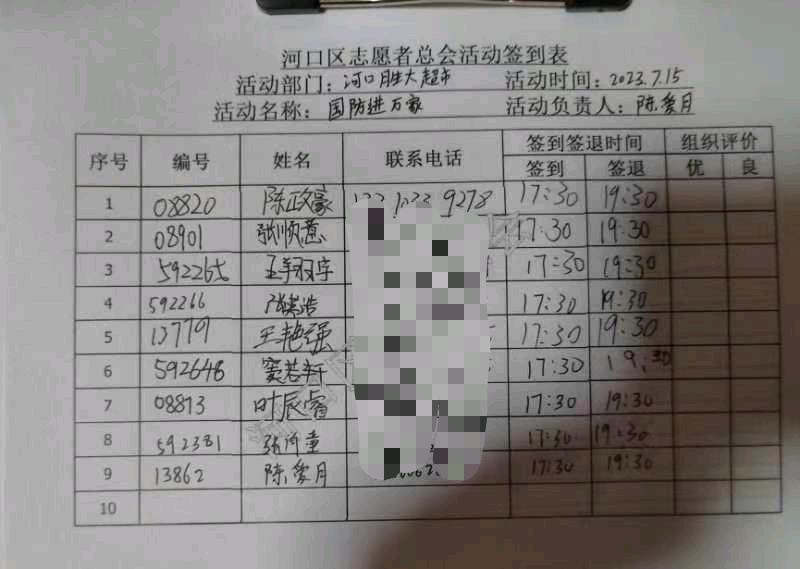 河口区志愿者总会活动签到表
活动部门：河口胜大超市 活动时间：2023.7.15
活动名称：国防进万家 活动负责人：陈爱月
序号 编号 姓名 联系电话 签到签退时间 组织评价
签到 签退 优 良
1 08820 陈政豪 9278 17:30 19:30
2 08901 张顺意 17:30 19:30
3 592265 王翔宇 17:30 19:30
4 592266 17:30 19:30
5 13779 王艳强 17:30 19:30
6 592648 窦若轩 17:30 19:30
7 08813 时辰睿 17:30 19:30
8 592381 17:30 19:30
9 13862 陈爱月 17:30 19:30
10